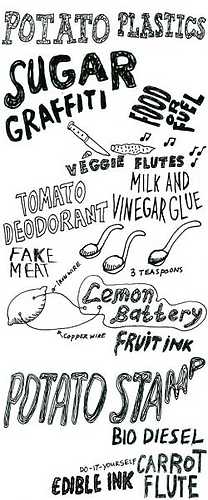 POTATO PLASTICS
SUGAR
GRAFFITI
FOOD
OR
FUEL
VÉGGIE FLUTES
TOMATO
DEODORANT
MILK AND
VINEGAR GLUE
FAKE
MEAT
3 TEASPOONS
Lemon
Battery
COPPER WIRE
FRUIT INK
POTATO STAMP
BIO DIESEL
DO-IT-YOURSELF
EDIBLE INK
CARROT
FLUTE